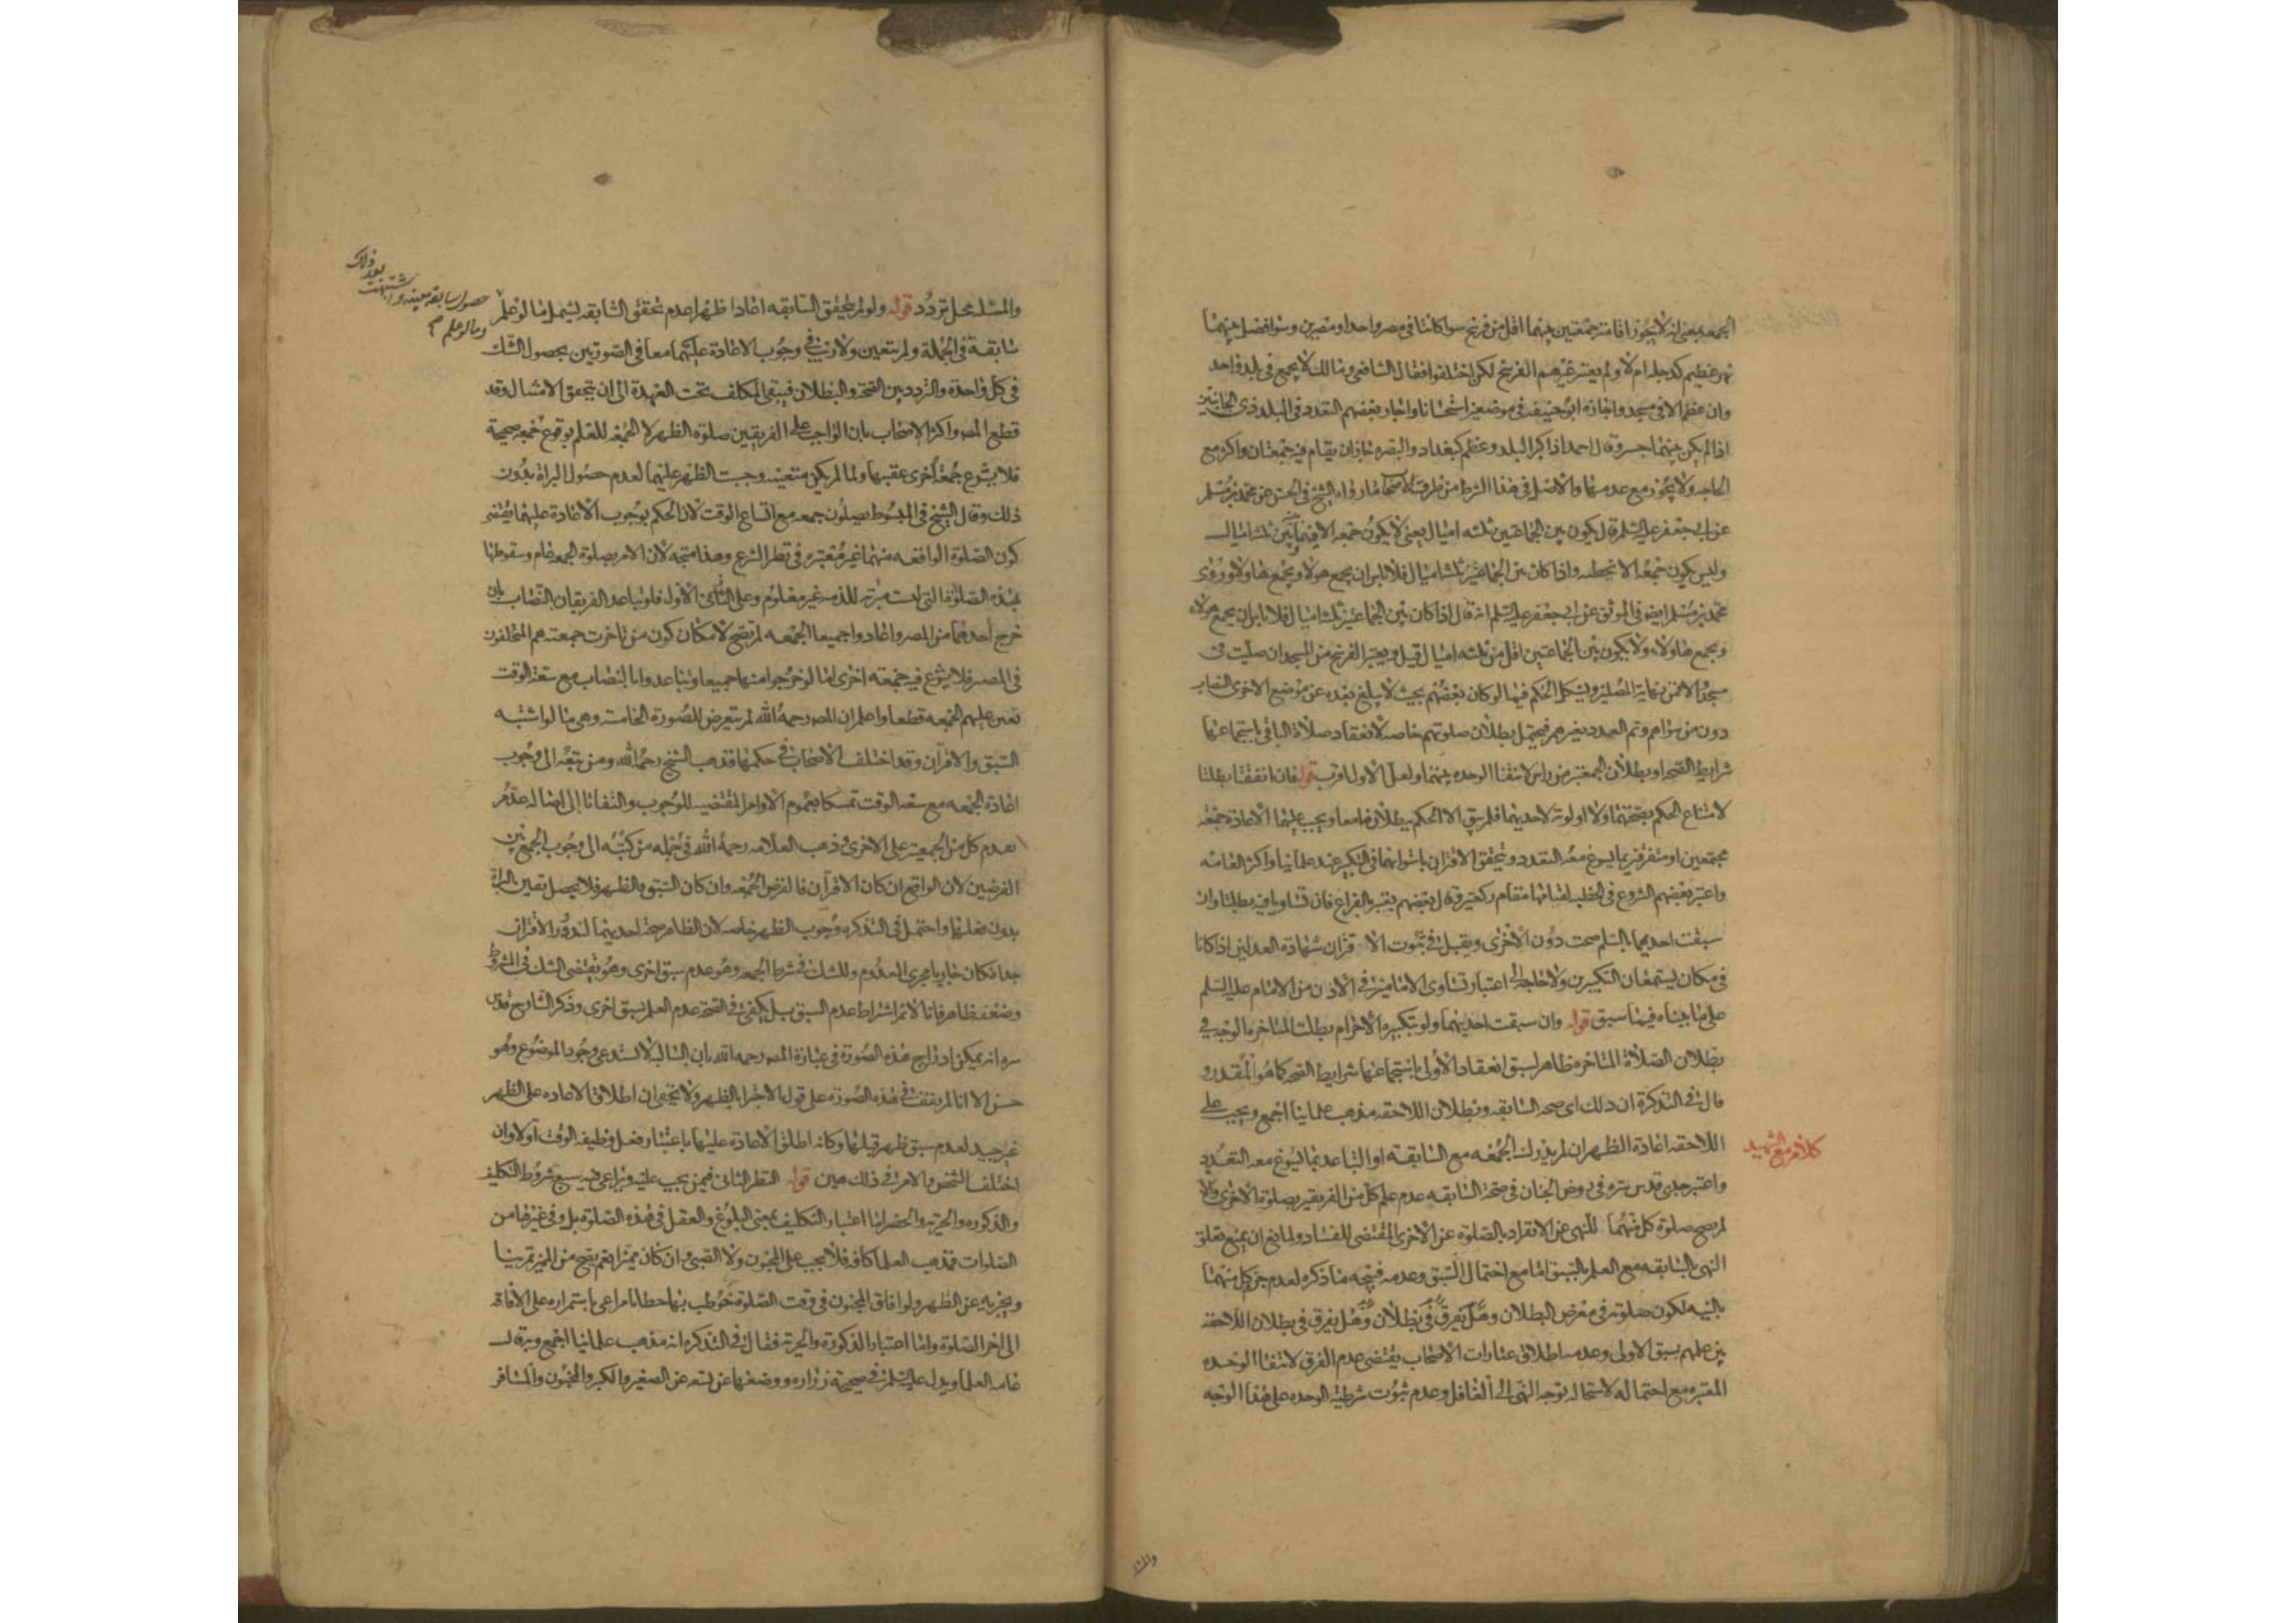 الجمعه بمعنى انه لا يجوز اقامة جمعتين بينهما اقل من فرسخ سوا كانتا في مصر واحد او مصرين وسوا فصل بينهما
نهر عظيم كدجله ام لا ولم يعتبر غيرهم الفرسخ لكن اختلفوا فقال الشافعي ومالك لا يجمع في بلد واحد
وان عظم الا في مسجد واحد واجازه ابو حنيفه في موضعين استحسانا واجاز بعضهم التعدد في البلد ذي الجانبين
اذا لم يكن بينهما جسر وقال احمد اذا كبر البلد وعظم كبغداد والبصره جاز ان يقام فيه جمعتان واكثر مع
الحاجه ولا يجوز مع عدمها والاصل في هذا الشرط من طرق الاصحاب ما رواه الشيخ في الحسن عن محمد بن مسلم
عن ابي جعفر عليه السلم قال يكون بين الجماعتين ثلثه اميال يعني لا يكون جمعه الا فيما بين ثلثه اميال
وليس يكون جمعه الا بخطبه واذا كان بين الجماعتين ثلثه اميال فلا باس ان يجمع هولاء ويجمع هاولاء وروى
محمد بن مسلم ايضا في الموثق عن ابي جعفر عليه السلم انه قال اذا كان بين الجماعتين ثلثه اميال فلا باس ان يجمع هولاء
ويجمع هاولاء ولا يكون بين الجماعتين اقل من ثلثه اميال قيل ويعتبر الفرسخ من المسجد ان صليت في
مسجد والا فمن نهاية المصلين ويشكل الحكم فيما لو كان بعضهم بحيث لا يبلغ بعده عن موضع الاخرى النصاب
دون من سواهم وتم العدد بغيرهم فيحتمل بطلان صلوتهم خاصه لانعقاد صلاة الباقي باستجماعها
شرايط الصحه او بطلان الجمعتين من راس لانتفا الوحده بينهما ولعل الاول اقرب قوله فان اتفقتا بطلتا
لامتناع الحكم بصحتهما ولا اولويه لاحديهما فلم يبق الا الحكم ببطلانهما معا ويجب عليهما الاعادة جمعه
مجتمعين او متفرقين بما يسوغ معه التعدد ويتحقق الاقتران باستوائهما في التكبير عند علمائنا واكثر العامه
واعتبر بعضهم الشروع في الخطبه لقيامها مقام ركعتين وقال بعضهم يعتبر بالفراغ فان تساويا فيه بطلتا وان
سبقت احديهما بالسلم صحت دون الاخرى ويقبل في ثبوت الاقتران شهادة العدلين اذا كانا
في مكان يستمعان التكبيرين ولا حاجه الى اعتبار تساوي الامامين في الاذن من الامام عليه السلم
على ما بيناه فيما سبق قوله وان سبقت احديهما ولو بتكبيرة الاحرام بطلت المتاخره الوجه في
بطلان الصلاة المتاخره ظاهر لسبق انعقاد الاولى باستجماعها شرايط الصحه كما هو المقدر و
قال في التذكرة ان ذلك اي صحه السابقه وبطلان اللاحقه مذهب علمائنا اجمع ويجب على
اللاحقه اعادة الظهر ان لم يدرك الجمعه مع السابقه او التباعد بما يسوغ معه التعدد
كلام مع الشهيد
واعتبر جدي قدس سره في روض الجنان في صحة السابقه عدم علم كل من الفريقين بصلوة الاخرى والا
لم يصح صلوة كل منهما للنهي عن الانفراد بالصلوة عن الاخرى المقتضي للفساد ولمانع ان يمنع تعلق
النهي بالسابقه مع العلم بالسبق اما مع احتمال السبق وعدمه فيتجه ما ذكره لعدم جزم كل منهما
بالنيه لكون صلوته في معرض البطلان وهل يفرق في بطلان وهل يفرق في بطلان اللاحقه
بين علمهم بسبق الاولى وعدمه اطلاق عبارات الاصحاب يقتضي عدم الفرق لانتفا الوحده
المعتبره مع احتماله لاستحاله توجه النهي الى الغافل وعدم ثبوت شرطيه الوحده على هذا الوجه
والمسئله
والمسئله محل تردد قوله ولو لم يتحقق السابقه اعادا ظهرا عدم تحقق السابقه يشمل ما لو علم
حصول سابقه معينه واشتبهت بعد ذلك
وما لو علم
سابقة في الجملة ولم يتعين ولا ريب في وجوب الاعادة عليهما معا في الصورتين لحصول الشك
في كل واحدة والتردد بين الصحة والبطلان فيبقى المكلف تحت العهدة الى ان يتحقق الامتثال وقد
قطع المصه واكثر الاصحاب بان الواجب على الفريقين صلوة الظهر لا الجمعه للعلم بوقوع جمعه صحيحة
فلا يشرع جمعة اخرى عقيبها ولما لم يكن متعينه وجبت الظهر عليهما لعدم حصول البراة بدون
ذلك وقال الشيخ في المبسوط يصلون جمعه مع اتساع الوقت لان الحكم بوجوب الاعادة عليهما يقتضي
كون الصلوة الواقعه منهما غير معتبره في نظر الشرع وهذا متجه لان الامر بصلوة الجمعه عام وسقوطها
بهذه الصلوة التي ليست مبرئه للذمه غير معلوم وعلى الثاني الاول فلو تباعد الفريقان النصاب بان
خرج احدهما من المصر واعادوا جميعا الجمعه لم تصح لامكان كون من تاخرت جمعته هم المتخلفون
في المصر فلا يشرع فيه جمعته اخرى اما لو خرجوا منها جميعا وتباعدوا بالنصاب مع سعة الوقت
تعين عليهم الجمعه قطعا واعلم ان المصه رحمه الله لم يتعرض للصورة الخامسة وهي ما لو اشتبه
السبق والاقتران وقد اختلف الاصحاب في حكمها فذهب الشيخ رحمه الله ومن تبعه الى وجوب
اعادة الجمعه مع سعه الوقت تمسكا بعموم الاوامر المقتضيه للوجوب والتفاتا الى اصاله عدم
تقدم كل من الجمعيتين على الاخرى وذهب العلامه رحمه الله في جمله من كتبه الى وجوب الجمع بين
الفرضين لان الواقع ان كان الاقتران فالفرض الجمعه وان كان السبق فالظهر فلا يحصل يقين البراة
بدون فعلهما واحتمل في التذكره وجوب الظهر خاصه لان الظاهر صحة احديهما لندور الاقتران
جدا فكان جاريا مجرى المعدوم وللشك في شرط الجمعه وهو عدم سبق اخرى وهو يقتضي الشك في المشروط
وضعفه ظاهر فانا لا نم اشتراط عدم السبق بل يكفي في الصحة عدم العلم بسبق اخرى وذكر الشارح قدس
سره انه يمكن ادراج هذه الصورة في عبارة المصه رحمه الله بان السالبه لا تستدعي وجود الموضوع وهو
حسن الا انا لم نقف في هذه الصورة على قول بالاجتزا بالظهر ولا يخفى ان اطلاق الاعاده على الظهر
غير جيد لعدم سبق ظهر قبلها وكانه اطلق الاعادة عليها باعتبار فعل وظيفه الوقت اولا وان
اختلف الشخص والامر في ذلك هين قوله النظر الثاني فيمن يجب عليه ويراعى فيه سبع شروط التكليف
والذكوره والحريه والحضر اما اعتبار التكليف بمعنى البلوغ والعقل في هذه الصلوة بل وفي غيرها من
الصلوات فمذهب العلما كافه فلا يجب على المجنون ولا الصبي وان كان مميزا نعم يصح من المميز تمرينا
ويجزيه عن الظهر ولو افاق المجنون في وقت الصلوة خوطب بها خطابا مراعى باستمراره على الافاقه
الى اخر الصلوة واما اعتبار الذكورة والحرية فقال في التذكره انه مذهب علمائنا اجمع وبه قال
عامه العلما ويدل عليه في صحيحة زراره ووضعها عن تسعه عن الصغير والكبير والمجنون والمسافر